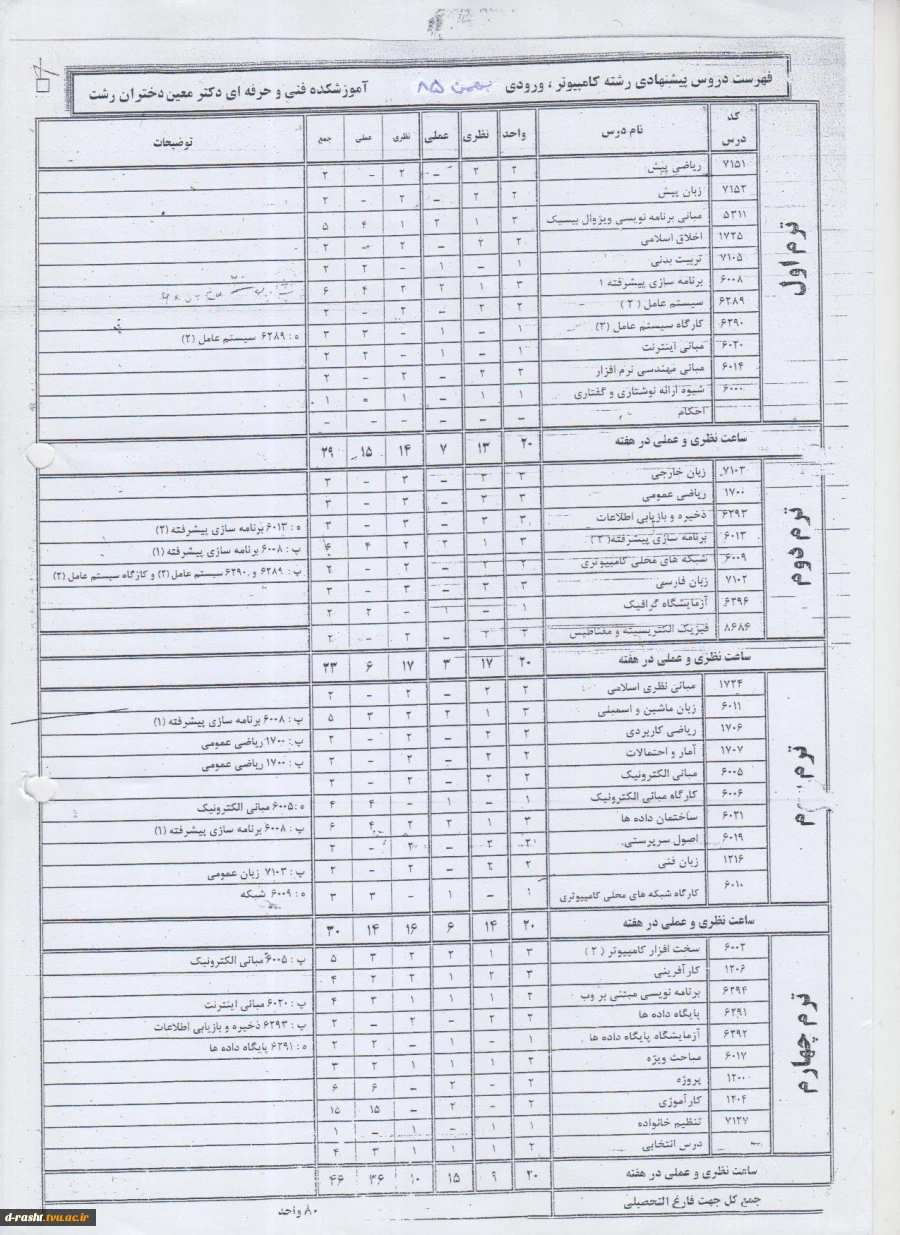 فهرست دروس پیشنهادی رشته کامپیوتر ، ورودی بهمن ۸۵ آموزشکده فنی و حرفه ای دکتر معین دختران رشت
کد درس نام درس واحد نظری عملی نظری عملی جمع توضیحات
ترم اول
۷۱۵۱ ریاضی پیش ۲ ۲ – ۲ – ۲
۷۱۵۲ زبان پیش ۲ ۲ – ۲ – ۲
۵۳۱۱ مبانی برنامه نویسی ویژوال بیسیک ۳ ۱ ۲ ۱ ۴ ۵
۱۷۲۵ اخلاق اسلامی ۲ ۲ – ۲ – ۲
۷۱۰۵ تربیت بدنی ۱ – ۱ – ۲ ۲
۶۰۰۸ برنامه سازی پیشرفته ۱ ۳ ۱ ۲ ۲ ۴ ۶
۶۲۸۹ سیستم عامل (۲) ۲ ۲ – ۲ – ۲
۶۲۹۰ کارگاه سیستم عامل (۲) ۱ – ۱ – ۳ ۳ ه : ۶۲۸۹ سیستم عامل (۲)
۶۰۲۰ مبانی اینترنت ۱ – ۱ – ۲ ۲
۶۰۱۴ مبانی مهندسی نرم افزار ۲ ۲ – ۲ ۲
۶۰۰۰ شیوه ارائه نوشتاری و گفتاری ۱ ۱ – ۱ ۰ ۱
احکام – – – – – –
ساعت نظری و عملی در هفته ۲۰ ۱۳ ۷ ۱۴ ۱۵ ۲۹
ترم دوم
۷۱۰۳ زبان خارجی ۳ ۳ – ۳ – ۳
۱۷۰۰ ریاضی عمومی ۳ ۳ – ۳ – ۳
۶۲۹۳ ذخیره و بازیابی اطلاعات ۳ ۳ – ۳ – ۳ ه : ۶۰۱۳ برنامه سازی پیشرفته (۲)
۶۰۱۳ برنامه سازی پیشرفته (۲) ۳ ۱ ۲ ۲ ۴ ۶ پ : ۶۰۰۸ برنامه سازی پیشرفته (۱)
۶۰۰۹ شبکه های محلی کامپیوتری ۲ ۲ – ۲ – ۲ پ : ۶۲۸۹ و ۶۲۹۰ سیستم عامل (۲) و کارگاه سیستم عامل (۲)
۷۱۰۲ زبان فارسی ۳ ۳ – ۳ – ۳
۶۲۹۶ آزمایشگاه گرافیک ۱ – ۱ – ۲ ۲
۸۶۸۶ فیزیک الکتریسیته و مغناطیس ۲ ۲ – ۲ – ۲
ساعت نظری و عملی در هفته ۲۰ ۱۷ ۳ ۱۷ ۶ ۲۳
ترم م
۱۷۲۴ مبانی نظری اسلامی ۲ ۲ – ۲ – ۲
۶۰۱۱ زبان ماشین و اسمبلی ۳ ۱ ۲ ۲ ۳ ۵ پ : ۶۰۰۸ برنامه سازی پیشرفته (۱)
۱۷۰۶ ریاضی کاربردی ۲ ۲ – ۲ – ۲ پ : ۱۷۰۰ ریاضی عمومی
۱۷۰۷ آمار و احتمالات ۲ ۲ – ۲ – ۲ پ : ۱۷۰۰ ریاضی عمومی
۶۰۰۵ مبانی الکترونیک ۲ ۲ – ۲ – ۲
۶۰۰۶ کارگاه مبانی الکترونیک ۱ – ۱ – ۴ ۴ ه : ۶۰۰۵ مبانی الکترونیک
۶۰۲۱ ساختمان داده ها ۳ ۱ ۲ ۲ ۴ ۶ پ : ۶۰۰۸ برنامه سازی پیشرفته (۱)
۶۰۱۹ اصول سرپرستی ۲ ۲ – ۲ – ۲
۱۲۱۶ زبان فنی ۲ ۲ – ۲ – ۲ پ : ۷۱۰۳ زبان عمومی
۶۰۱۰ کارگاه شبکه های محلی کامپیوتری ۱ – ۱ – ۳ ۳ ه : ۶۰۰۹ شبکه
ساعت نظری و عملی در هفته ۲۰ ۱۴ ۶ ۱۶ ۱۴ ۳۰
ترم چهارم
۶۰۰۲ سخت افزار کامپیوتر (۲) ۳ ۱ ۲ ۲ ۳ ۵ پ : ۶۰۰۵ مبانی الکترونیک
۱۲۰۶ کارآفرینی ۳ ۲ ۱ ۲ ۲ ۴
۶۲۹۴ برنامه نویسی مبتنی بر وب ۲ ۱ ۱ ۱ ۳ ۴ پ : ۶۰۲۰ مبانی اینترنت
۶۲۹۱ پایگاه داده ها ۲ ۲ – ۲ – ۲ پ : ۶۲۹۳ ذخیره و بازیابی اطلاعات
۶۲۹۲ آزمایشگاه پایگاه داده ها ۱ – ۱ – ۲ ۲ ه : ۶۲۹۱ پایگاه داده ها
۶۰۱۷ مباحث ویژه ۲ ۱ ۱ ۱ ۲ ۳
۱۲۰۰ پروژه ۲ – ۲ – ۶ ۶
۱۲۰۴ کارآموزی ۲ – ۲ – ۱۵ ۱۵
۷۱۲۷ تنظیم خانواده ۱ ۱ – ۱ – ۱
درس انتخابی ۲ ۱ ۱ ۱ ۳ ۴
ساعت نظری و عملی در هفته ۲۰ ۹ ۱۵ ۱۰ ۳۶ ۴۶
جمع کل جهت فارغ التحصیلی ۸۰ واحد
d-rasht.tvu.ac.ir